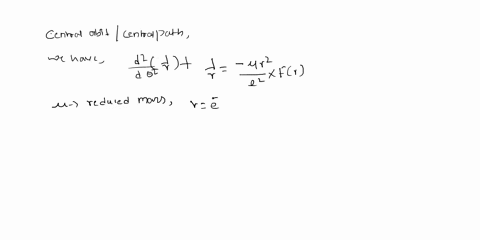 Central orbit / central path,
we have, d²/dθ² (1/r) + 1/r = -μr²/l² × F(r)
μ → reduced mass, r = e⁻